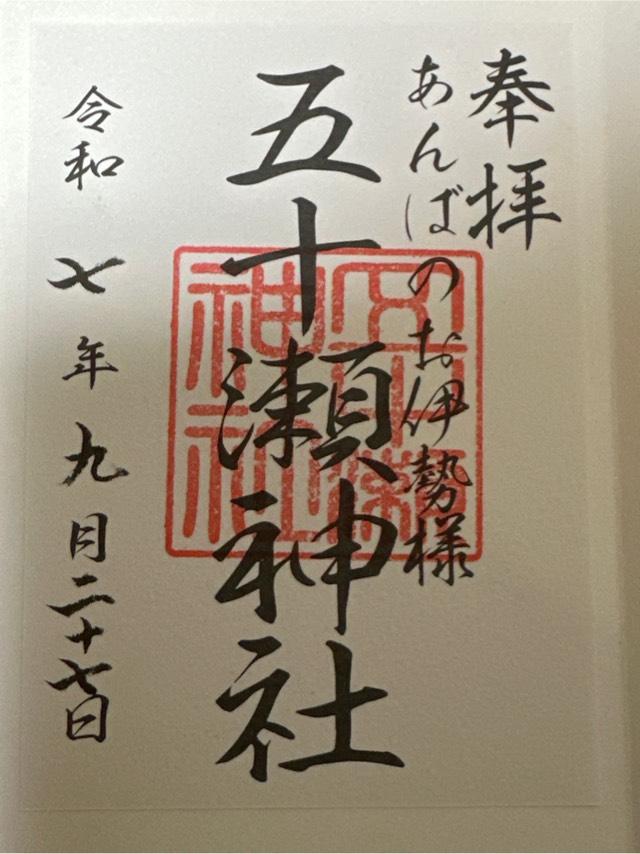 奉拝
あんばのお伊勢様
五十瀬神社
五十瀬神社
令和七年九月二十七日